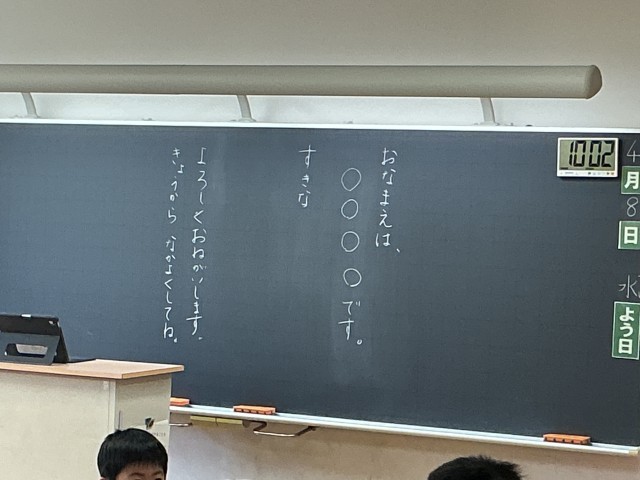 4月8日 水よう日
10:02
おなまえは、
○○○○です。
すきな
よろしくおねがいします。
きょうから なかよくしてね。